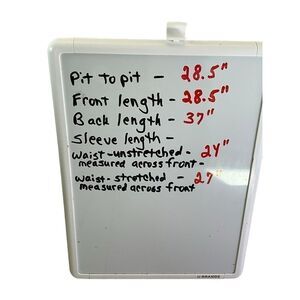 Pit to pit - 28.5"
Front length - 28.5"
Back length - 37"
Sleeve length -
Waist-unstretched - 24"
measured across front -
waist- stretched - 27"
measured across front
U BRANDS